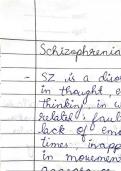 Schizophrenia
- SZ is a diso
in thought, e
thinking, in w
relate, fault
lack of emo
times, inapp
in movemen